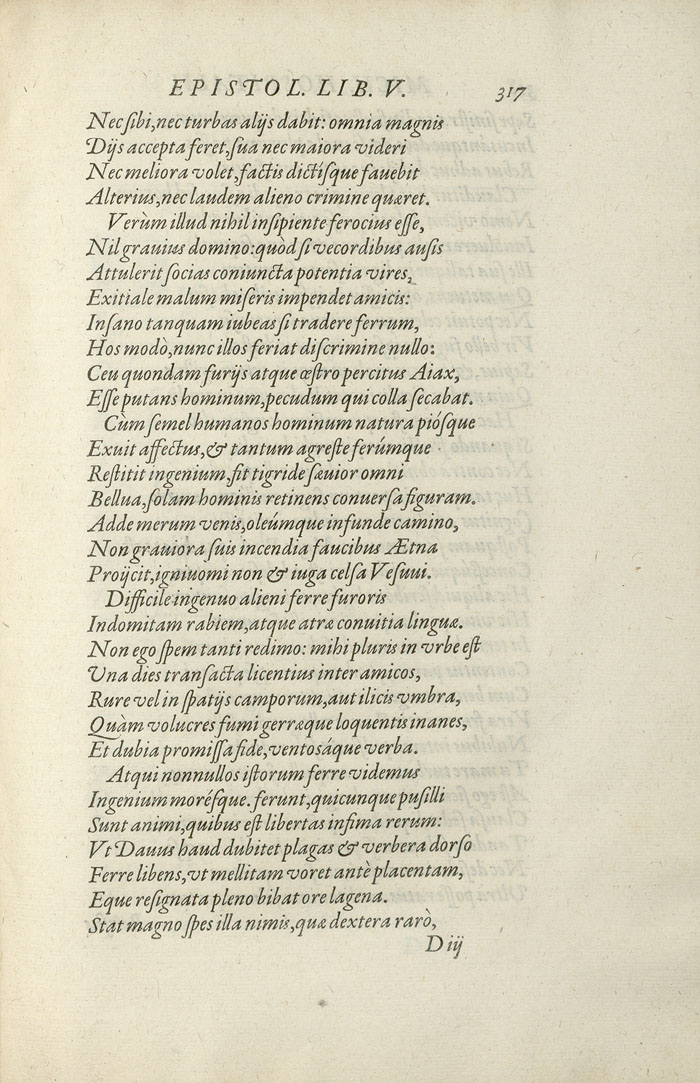 EPISTOL. LIB. V. 317
Nec sibi, nec turbas alijs dabit: omnia magnis
Dijs accepta feret, sua nec maiora videri
Nec meliora volet, factis dictisque fauebit
Alterius, nec laudem alieno crimine quæret.
Verùm illud nihil insipiente ferocius esse,
Nil grauius domino: quòd si vecordibus ausis
Attulerit socias coniuncta potentia vires,
Exitiale malum miseris impendet amicis:
Insano tanquam iubeas si tradere ferrum,
Hos modò, nunc illos feriat discrimine nullo:
Ceu quondam furijs atque œstro percitus Aiax,
Esse putans hominum, pecudum qui colla secabat.
Cùm semel humanos hominum natura piósque
Exuit affectus, & tantum agreste ferúmque
Restitit ingenium, fit tigride sæuior omni
Bellua, solam hominis retinens conuersa figuram.
Adde merum venis, oleúmque infunde camino,
Non grauiora suis incendia faucibus Ætna
Proijcit, igniuomi non & iuga celsa Vesuui.
Difficile ingenuo alieni ferre furoris
Indomitam rabiem, atque atræ conuitia linguæ.
Non ego spem tanti redimo: mihi pluris in vrbe est
Una dies transacta licentius inter amicos,
Rure vel in spatijs camporum, aut ilicis vmbra,
Quàm volucres fumi gerræque loquentis inanes,
Et dubia promissa fide, ventosáque verba.
Atqui nonnullos istorum ferre videmus
Ingenium morésque. ferunt, quicunque pusilli
Sunt animi, quibus est libertas infima rerum:
Vt Dauus haud dubitet plagas & verbera dorso
Ferre libens, vt mellitam voret antè placentam,
Eque resignata pleno bibat ore lagena.
Stat magno spes illa nimis, quæ dextera rarò,
D iij